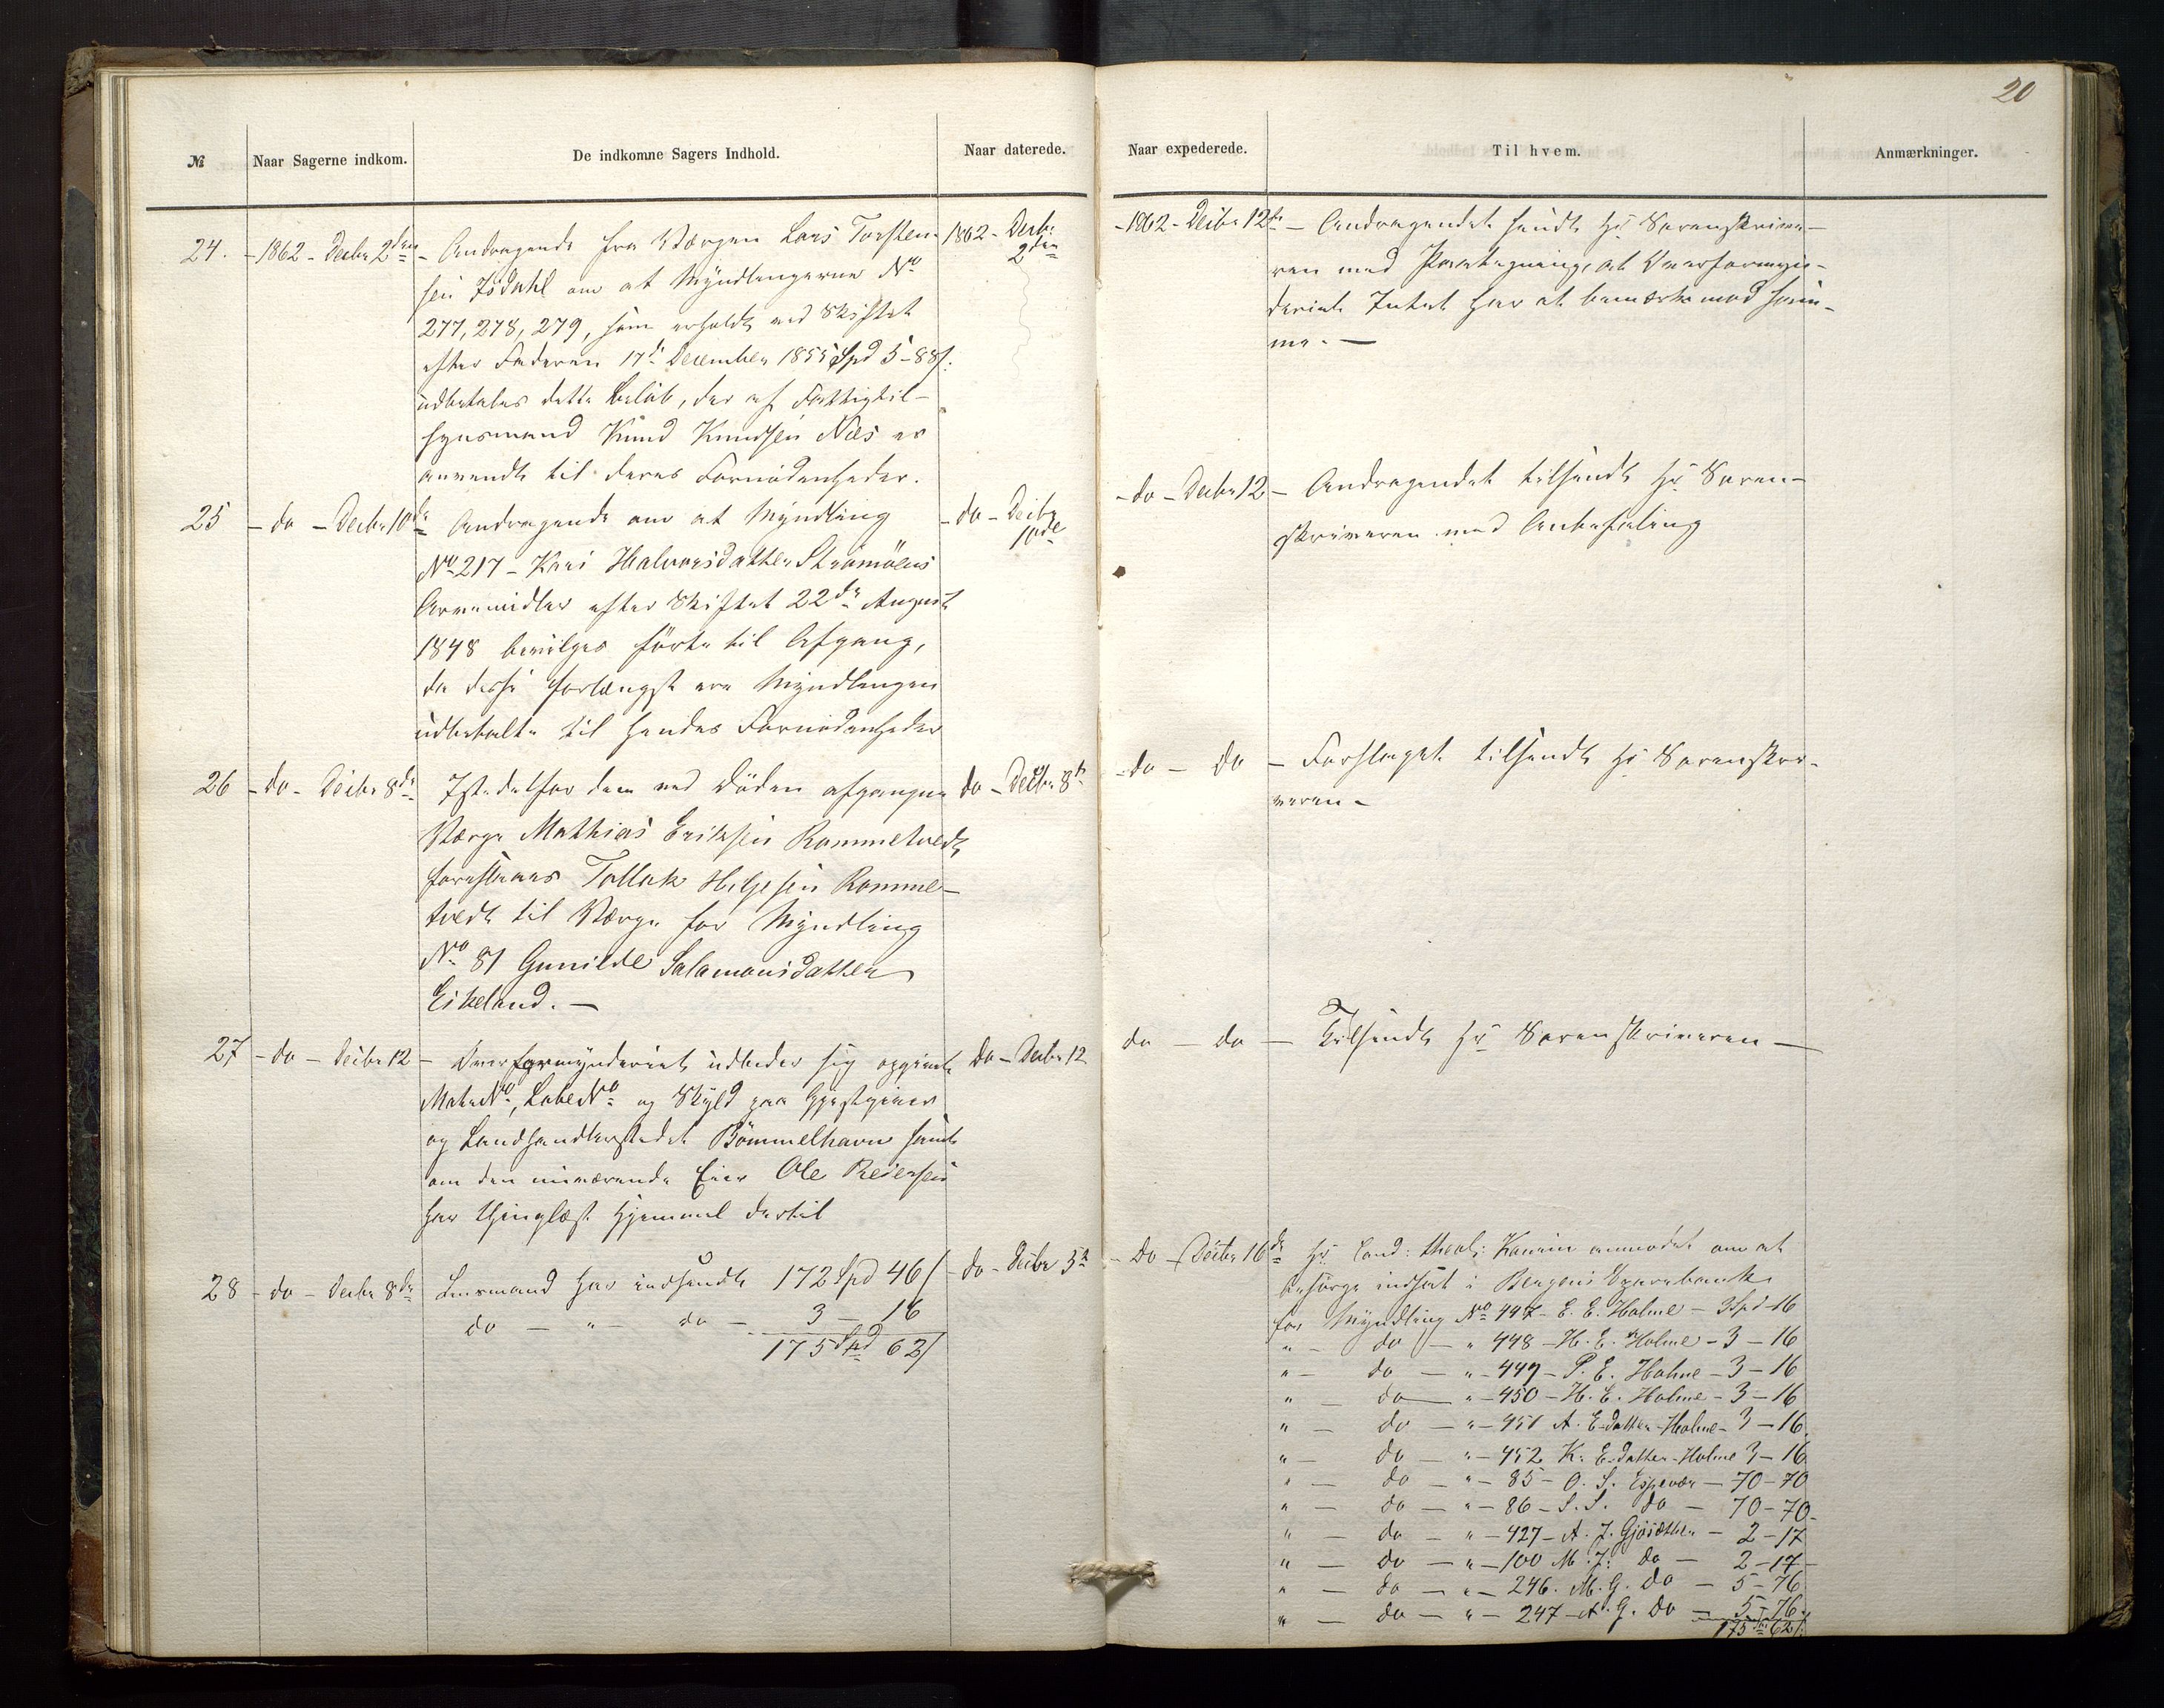 20
№ Naar Sagerne indkom. De indkomne Sagers Indhold. Naar daterede.
24. - 1862 - Decbr 2den - Andragende fra Værgen Lars Torsten- 1862 - Decbr.
sen Isdahl om at Myndlingerne No 2den
277, 278, 279, som erholdt ved Skiftet
efter Faderen 17de December 1855 Spd 5-88 s.
udbetales dette Beløb, der af Fattigtil-
synsmand Knud Knudsen Næs er
anvendt til deres Fornødenheder.
25 - do - Decbr 10de - Andragende om at Myndling - do - Decbr
No 217 - Kari Halvorsdatter Strømøens 10de
Arvemidler efter Skiftet 22de August
1848 bevilges førte til Afgang,
da disse forlængst ere Myndlingen
udbetalte til hendes Fornødenheder
26 - do - Decbr 8de Istedetfor den ved Døden afgangne do - Decbr 8de
Værge Mathias Eriksen Rommetvedt
foreslaaes Tollak Helgesen Romme-
tvedt til Værge for Myndling
No 81 Gunilde Salamonsdatter
Eikeland. -
27 - do - Decbr 12 - Overformynderiet udbeder sig opgivet do - Decbr 12
MatrNo, LøbeNo og Skyld paa Gjestgiver
og Landhandlerstedet Bømmelhavn samt
om den nuværende Eier Ole Reiersen
har thinglæst Hjemmel dertil
28 - do - Decbr 8de Lensmand har indsendt 172 Spd 46 s - do - Decbr 5te
do - " - do - 3 - 16
175 Spd 62 s
Naar expederede. Til hvem. Anmærkninger.
- 1862 - Decbr 12te - Andragendet sendt Hr Sorenskrive-
ren med Paategning, at Overformyn-
deriet Intet har at bemærke mod sam-
me. -
- do - Decbr 12 - Andragendet tilsendt Hr Soren-
skriveren med Anbefaling
- do - do - Forslaget tilsendt Hr Sorenskri-
veren -
do - do - Tilsendt Hr Sorenskriveren -
- do - Decbr 16de Hr Cand: theol: anmodet om at
besørge indsat i Bergens Sparebank
for Myndling No 447 - E. E. Holme - 3 Spd - 16
" - do - " 448 - H. E. Holme - 3 - 16
" - do - " - 449 - P. E. Holme - 3 - 16
" - do - " - 450 - H. E. Holme - 3 - 16
" - do - " - 451 A. E-datter Holme - 3 - 16
" - do - " - 452 K. E-datter Holme 3 - 16
" - do - " - 85 - O. S. Espevær - 70 - 70
" - do - " - 86 - S. S. do - 70 - 70
" - do - " - 427 - A. J. Gjøsæther - 2 - 17
" - do - " - 100 M. J. do - 2 - 17
" - do - " - 246. M. G. do - 5 - 76
" - do - " - 247 - A. G. do - 5 - 76
175 Spd 62 s.